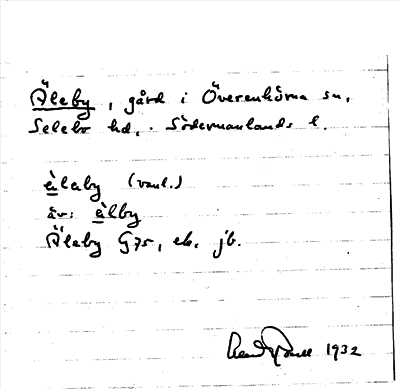 Äleby, gård i Överenhörna sn,
Selebo hd, Södermanlands l.
älaby (vanl.)
äv: älby
Äleby G75, ek. jb.
1932